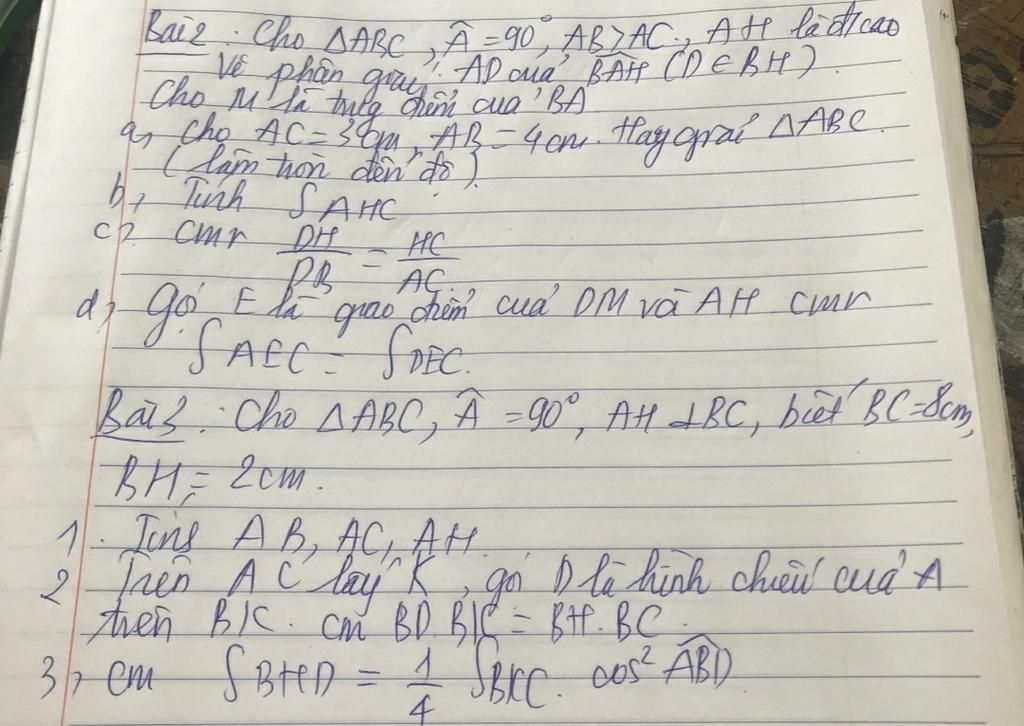 Bài 2 : Cho ΔABC, Â = 90°, AB > AC, AH là đ/cao
Vẽ phân giác AD của BAH (D ∈ BH)
Cho M là trung điểm của BA
a, Cho AC = 3cm, AB = 4cm. Hãy giải ΔABC
(làm tròn đến độ)
b, Tính S AHC
c, cmr DH/DB = HC/AC
d, Gọi E là giao điểm của DM và AH cmr
S AEC = S DEC.
Bài 3 : Cho ΔABC, Â = 90°, AH ⊥ BC, biết BC = 8cm,
BH = 2cm.
1. Tính AB, AC, AH
2 Trên AC lấy K, gọi D là hình chiếu của A
trên BK. cm BD.BK = BH.BC
3, cm S BHD = 1/4 S BKC. cos² ABD